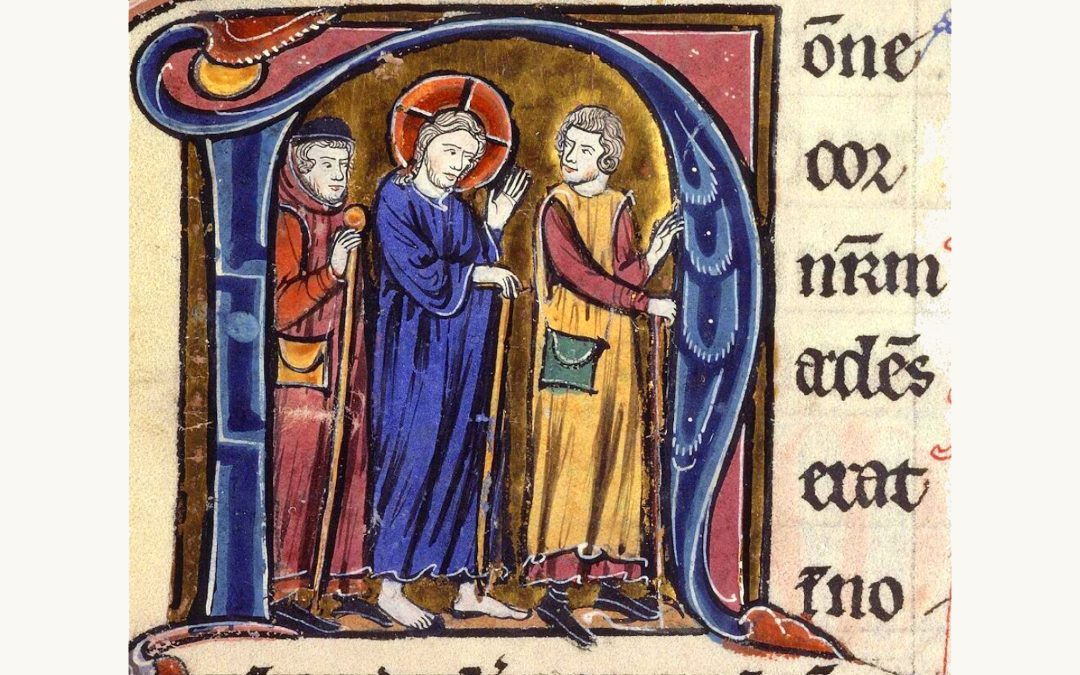 Nōne
cor
nr̄m
ardēs
erat
ī no